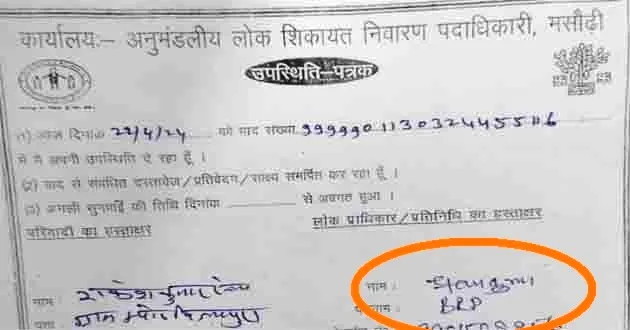 कार्यालय:– अनुमंडलीय लोक शिकायत निवारण पदाधिकारी, मसौढ़ी
उपस्थिति–पत्रक
(1) आज दिनांक 22/4/24 को वाद संख्या 999990113032445516
में मैं अपनी उपस्थिति दे रहा हूँ ।
(2) वाद से संबंधित दस्तावेज/प्रतिवेदन/साक्ष्य समर्पित कर रहा हूँ ।
(3) अगली सुनवाई की तिथि दिनांक से अवगत हुआ ।
परिवादी का हस्ताक्षर लोक प्राधिकार/प्रतिनिधि का हस्ताक्षर
नाम : नाम :
पदनाम : BRP
पता :